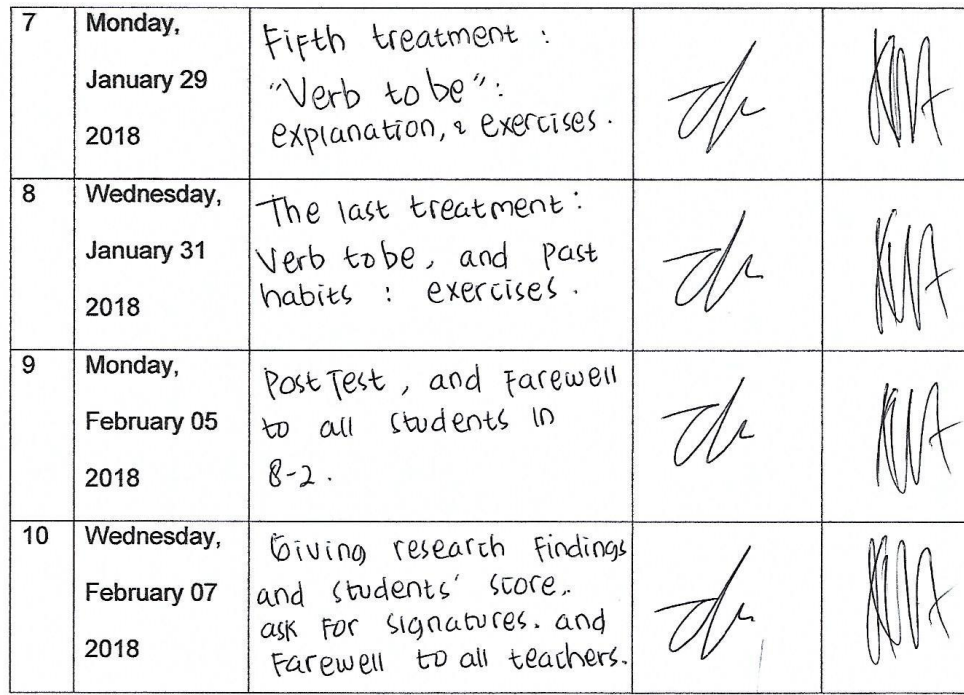 7
Monday,
January 29
2018
Fifth treatment :
"Verb to be":
explanation, & exercises.
8
Wednesday,
January 31
2018
The last treatment:
Verb to be, and past
habits : exercises.
9
Monday,
February 05
2018
Post Test, and Farewell
to all students in
8-2.
10
Wednesday,
February 07
2018
Giving research findings
and students' score.
ask for signatures. and
Farewell to all teachers.